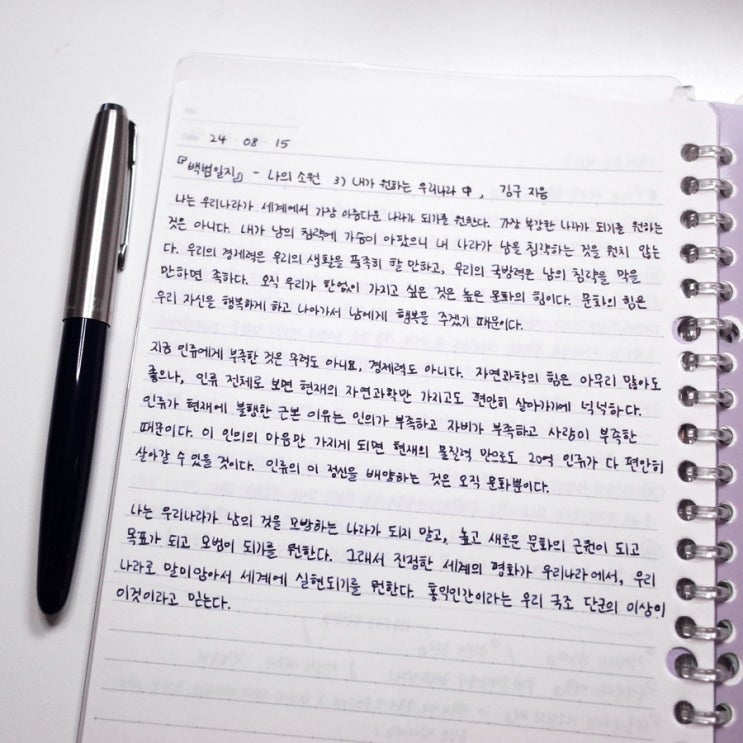 24 · 08 · 15
『백범일지』 - 나의 소원 3) 내가 원하는 우리나라 中, 김구 지음
나는 우리나라가 세계에서 가장 아름다운 나라가 되기를 원한다. 가장 부강한 나라가 되기를 원하는
것은 아니다. 내가 남의 침략에 가슴이 아팠으니 내 나라가 남을 침략하는 것을 원치 않는
다. 우리의 경제력은 우리의 생활을 풍족히 할 만하고, 우리의 국방력은 남의 침략을 막을
만하면 족하다. 오직 우리가 한없이 가지고 싶은 것은 높은 문화의 힘이다. 문화의 힘은
우리 자신을 행복하게 하고 나아가서 남에게 행복을 주겠기 때문이다.
지금 인류에게 부족한 것은 무력도 아니요, 경제력도 아니다. 자연과학의 힘은 아무리 많아도
좋으나, 인류 전체로 보면 현재의 자연과학만 가지고도 편안히 살아가기에 넉넉하다.
인류가 현재에 불행한 근본 이유는 인의가 부족하고 자비가 부족하고 사랑이 부족한
때문이다. 이 인의의 마음만 가지게 되면 현재의 물질력 만으로도 20억 인류가 다 편안히
살아갈 수 있을 것이다. 인류의 이 정신을 배양하는 것은 오직 문화뿐이다.
나는 우리나라가 남의 것을 모방하는 나라가 되지 말고, 높고 새로운 문화의 근원이 되고
목표가 되고 모범이 되기를 원한다. 그래서 진정한 세계의 평화가 우리나라에서, 우리
나라로 말미암아서 세계에 실현되기를 원한다. 홍익인간이라는 우리 국조 단군의 이상이
이것이라고 믿는다.